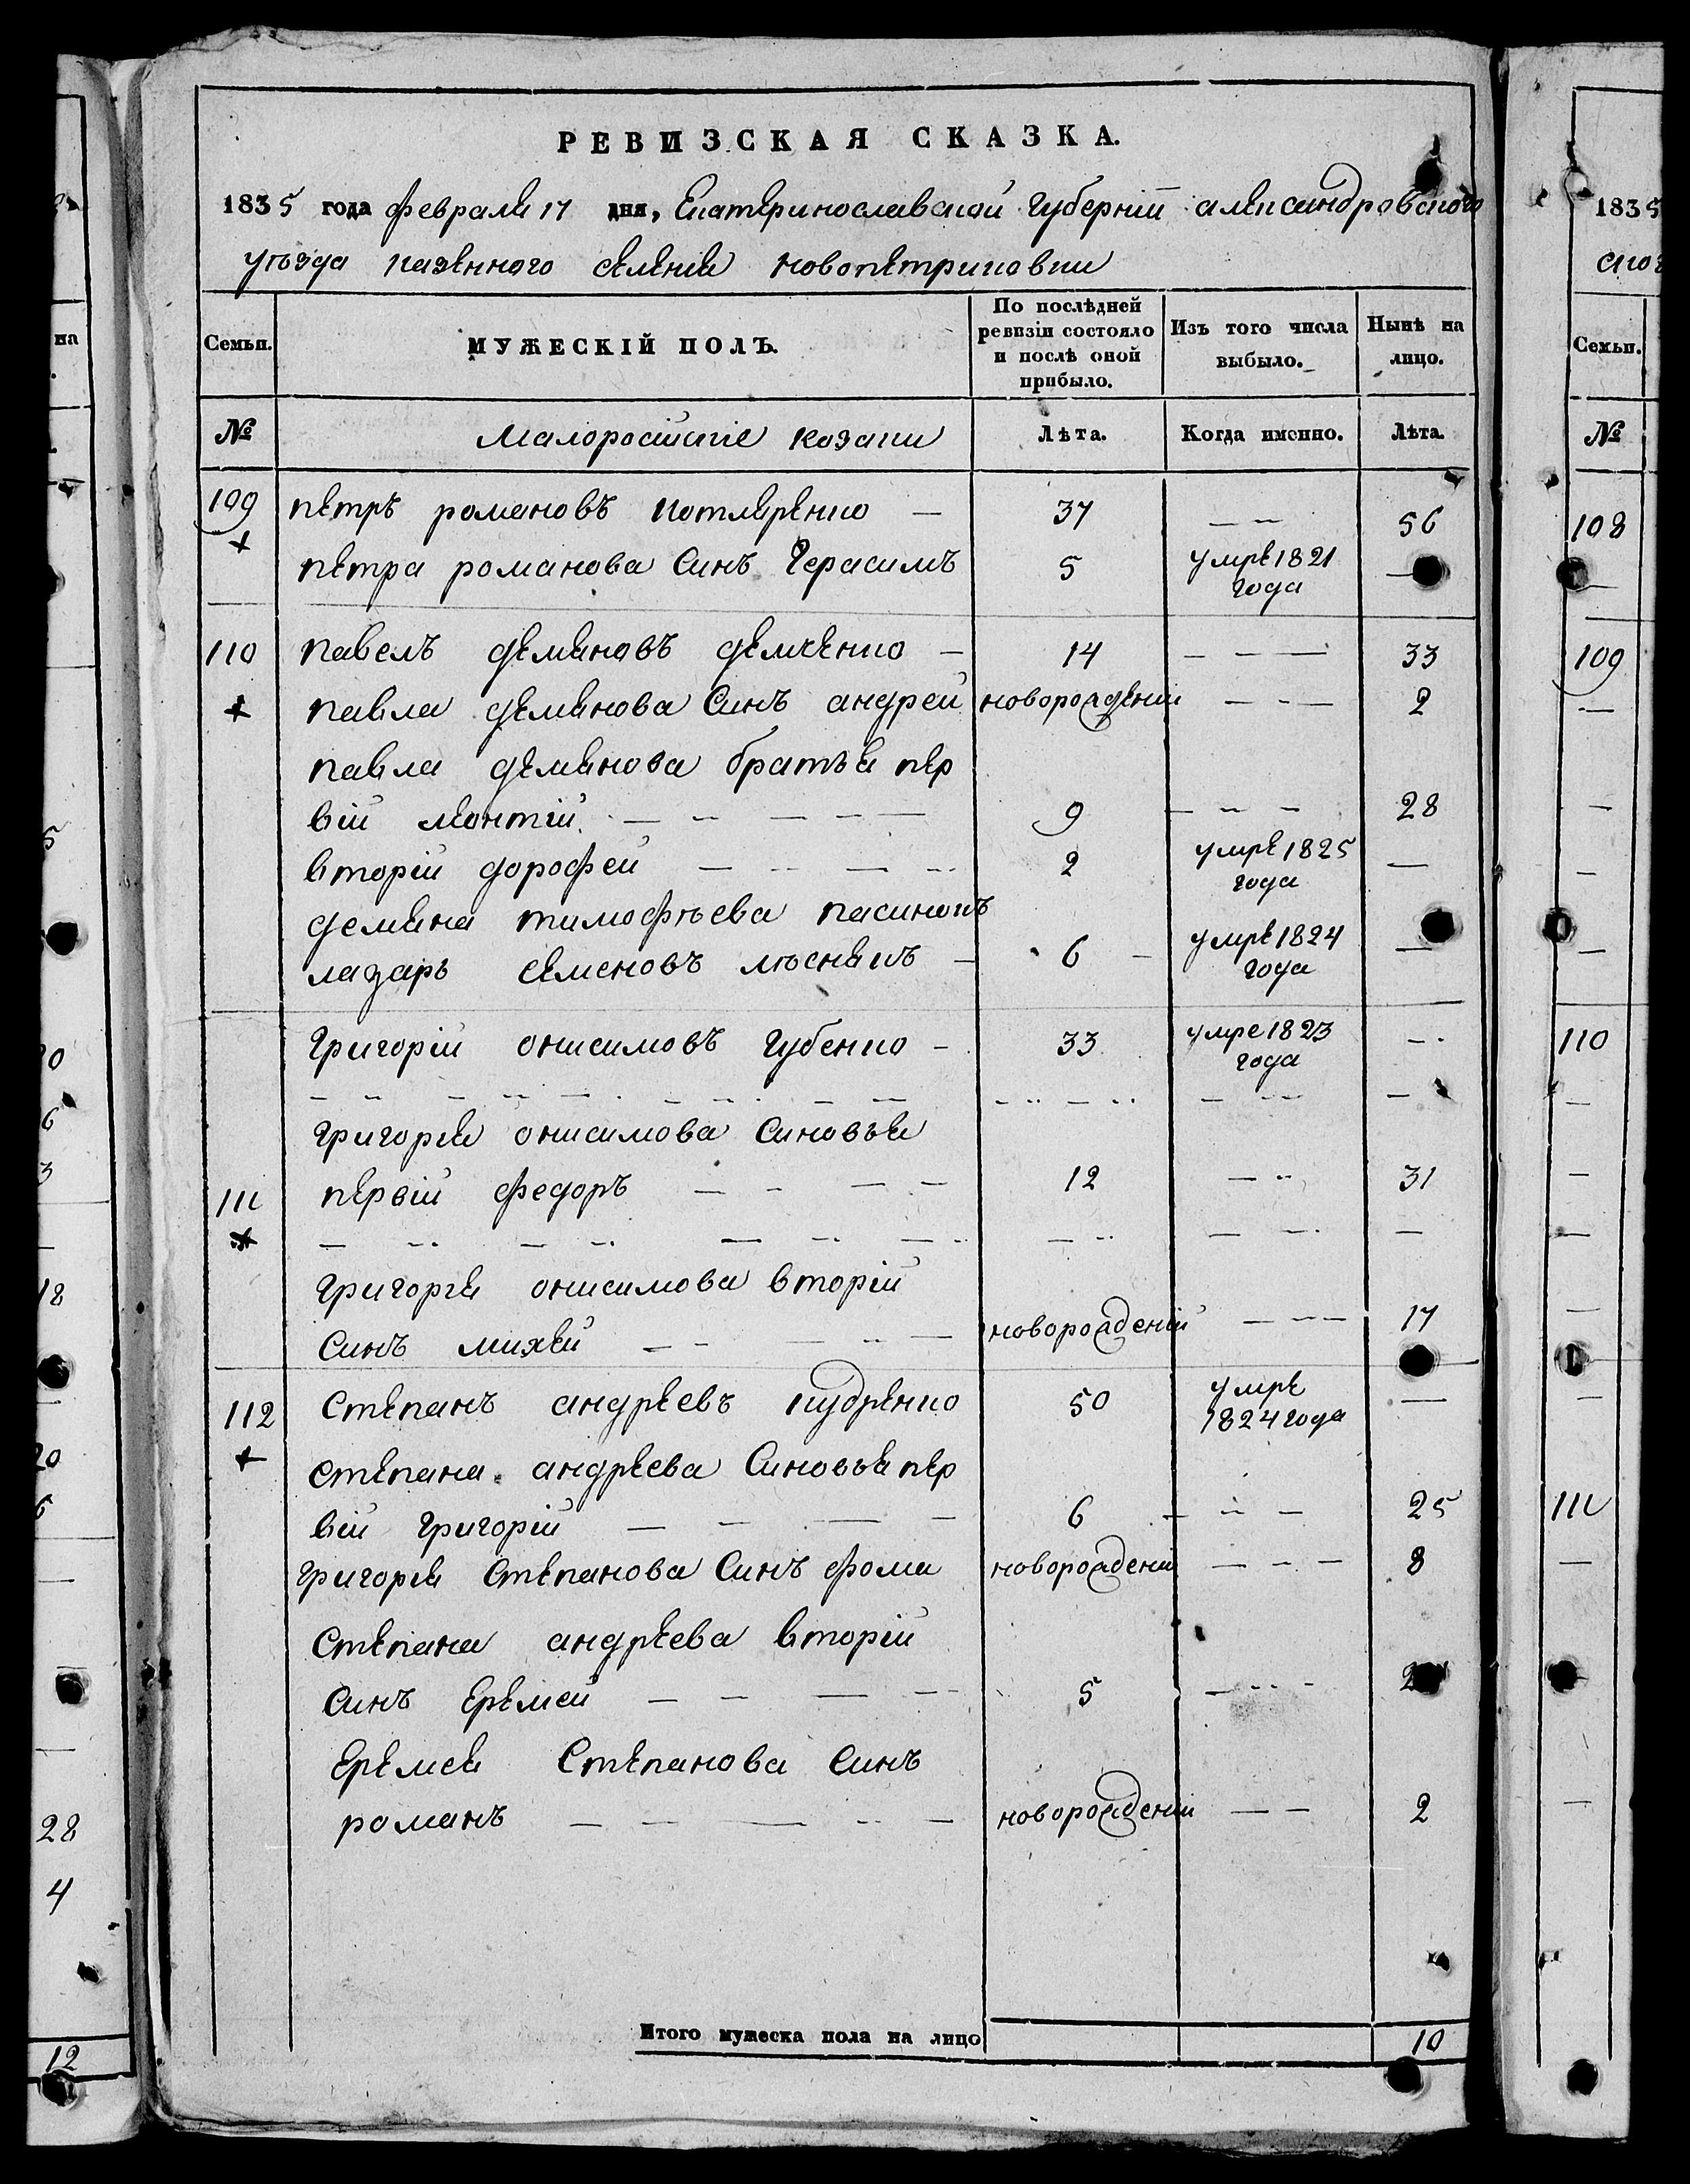 РЕВИЗСКАЯ СКАЗКА.
1835 года февраля 17 дня, Екатеринославской губерніи александровского
уѣзда казенного селенія новопетриковки
Семьи. МУЖЕСКІЙ ПОЛЪ. По послѣдней ревизіи состояло и послѣ оной прибыло. Изъ того числа выбыло. Нынѣ на лицо.
№ Малоросійскіе козаки Лѣта. Когда именно. Лѣта.
109 петръ романовъ котляренко — 37 — — 56
петра романова Синъ Герасимъ 5 умре 1821 года —
110 павелъ демяновъ демченко — 14 — — — 33
павла демянова Синъ андрей новорожденій — - — 2
павла демянова братья пер
вій леонтій — — — — 9 — — — 28
вторій дорофей — — — 2 умре 1825 года —
демяна тимофѣева пасинокъ
лазарь семеновъ — 6 — умре 1824 года —
григорій онисимовъ губенко — 33 умре 1823 года —
григорія онисимова Синовья
111 первій федоръ — - — - 12 — - 31
григорія онисимова вторій
Синъ михей — - — - — новорожденій — — — 17
112 Степанъ андреевъ кудренко 50 умре 1824 года —
степана андреева Синовья пер
вій григорій — — — — 6 — — — 25
григорія Степанова Синъ фома новорожденій — - — 8
Степана андреева вторій
синъ Еремей — — — — 5 — - -
Еремея Степанова Синъ
романъ — — — — новорожденій — — 2
Итого мужеска пола на лицо 10
на
5
6
3
18
28
4
12
1835
ског
Семьи.
№
108
109
110
111